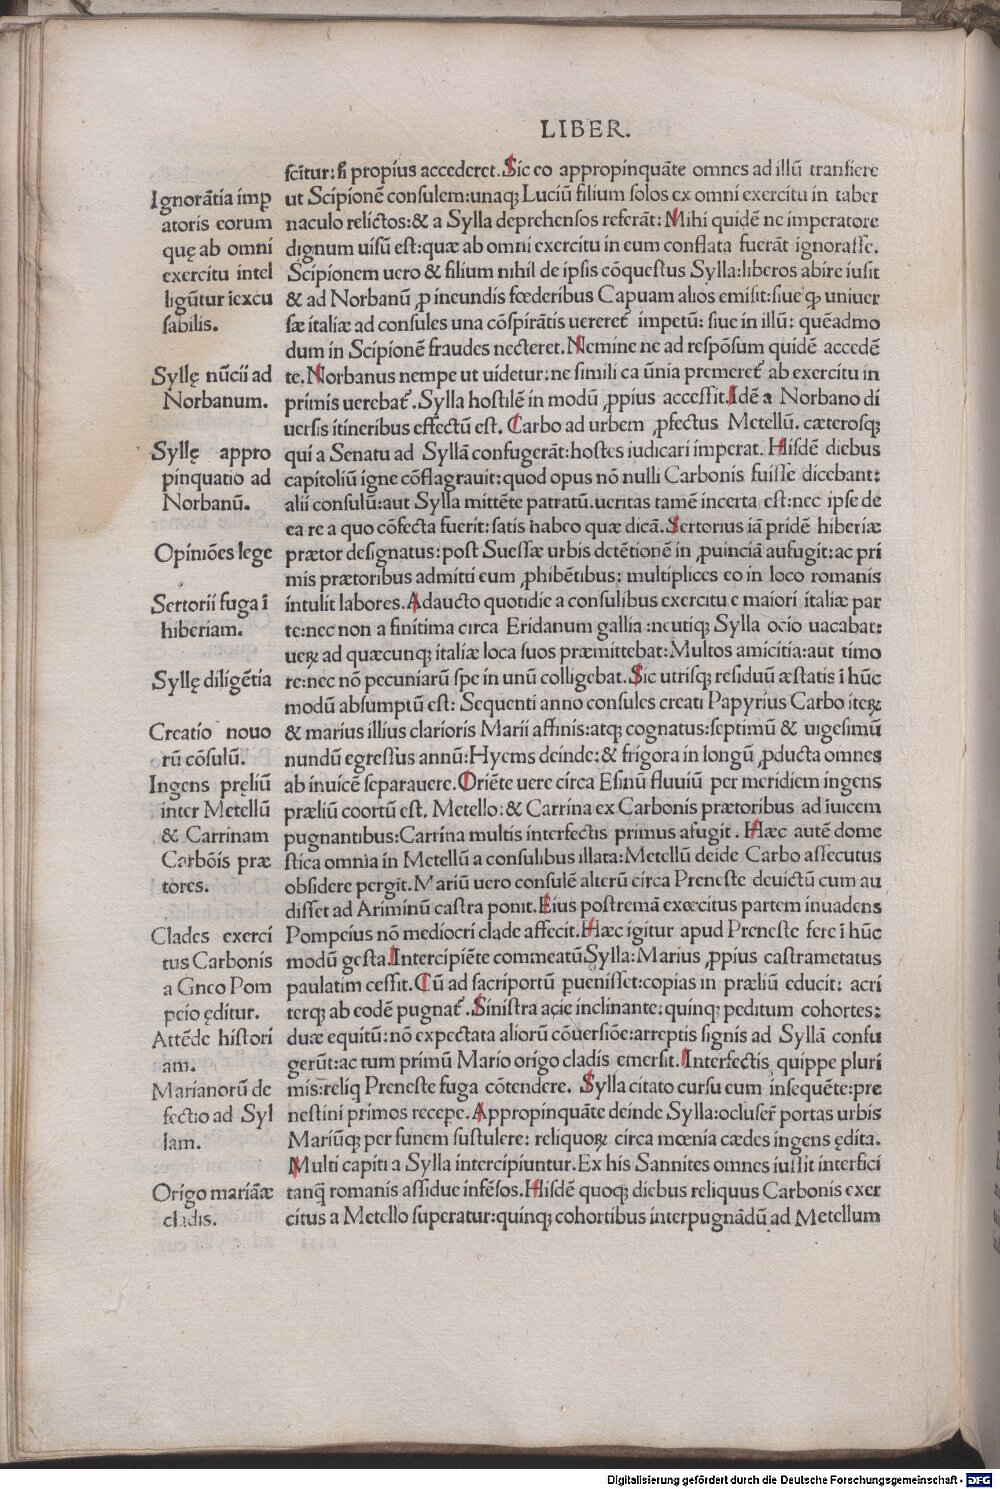 LIBER.
scitur: si propius accederet. Sic eo appropinquāte omnes ad illū transiere
ut Scipionē consulem: unaqꝫ Luciū filium solos ex omni exercitu in taber
naculo relictos: & a Sylla deprehensos referāt: Mihi quidē ne imperatore
dignum uisū est: quæ ab omni exercitu in eum conflata fuerāt ignorasse.
Scipionem uero & filium nihil de ipsis cōquestus Sylla: liberos abire iusit
& ad Norbanū ꝓ ineundis fœderibus Capuam alios emisit: siue ꝙ uniuer
sæ italiæ ad consules una cōspirātis uereret᷑ impetū: siue in illū: quēadmo
dum in Scipionē fraudes necteret. Nemine ne ad respōsum quidē accedē
te. Norbanus nempe ut uidetur: ne simili calūnia premeret᷑ ab exercitu in
primis uerebat᷑. Sylla hostilē in modū ꝓpius accessit. Idē a Norbano di
uersis itineribus effectū est. Carbo ad urbem ꝓfectus Metellū. cæterosqꝫ
qui a Senatu ad Syllā confugerāt: hostes iudicari imperat. Hisdē diebus
capitoliū igne cōflagrauit: quod opus nō nulli Carbonis fuisse dicebant:
alii consulū: aut Sylla mittēte patratū. ueritas tamē incerta est: nec ipse de
ea re a quo cōfecta fuerit: satis habeo quæ dicā. Sertorius iā pridē hiberiæ
prætor designatus: post Suessæ urbis detētionē in ꝓuinciā aufugit: ac pri
mis prætoribus admitti eum ꝓhibētibus: multiplices eo in loco romanis
intulit labores. Adaucto quotidie a consulibus exercitu e maiori italiæ par
te: nec non a finitima circa Eridanum gallia: neutiqꝫ Sylla ocio uacabat:
ueꝝ ad quæcunqꝫ italiæ loca suos præmittebat: Multos amicitia: aut timo
re: nec nō pecuniarū spe in unū colligebat. Sic utrisqꝫ residuū æstatis ī hūc
modū absumptū est: Sequenti anno consules creati Papyrius Carbo iteꝝ
& marius illius clarioris Marii affinis: atqꝫ cognatus: septimū & uigesimū
nundū egressus annū: Hyems deinde: & frigora in longū ꝓducta omnes
ab inuicē separauere. Oriēte uere circa Esinū fluuiū per meridiem ingens
præliū coortū est. Metello: & Carrina ex Carbonis prætoribus ad iuicem
pugnantibus: Carrina multis interfectis primus afugit. Hæc autē dome
stica omnia in Metellū a consulibus illata: Metellū deide Carbo assecutus
obsidere pergit. Mariū uero consulē alterū circa Preneste deuictū cum au
disset ad Ariminū castra ponit. Eius postremā exœcitus partem inuadens
Pompeius nō mediocri clade affecit. Hæc igitur apud Preneste fere ī hūc
modū gesta. Intercipiēte commeatū Sylla: Marius ꝓpius castrametatus
paulatim cessit. Cū ad sacriportū ꝑuenisset: copias in præliū educit: acri
terqꝫ ab eodē pugnat᷑. Sinistra acie inclinante: quinqꝫ peditum cohortes:
duæ equitū: nō expectata aliorū cōuersiōe: arreptis signis ad Syllā confu
gerūt: ac tum primū Mario origo cladis emersit. Interfectis quippe pluri
mis: reliq Preneste fuga cōtendere. Sylla citato cursu eum insequēte: pre
nestini primos recepe. Appropinquāte deinde Sylla: ocluser̄ portas urbis
Mariūqꝫ per funem sustulere: reliquoꝝ circa mœnia cædes ingens ędita.
Multi capiti a Sylla intercipiuntur. Ex his Sannites omnes iussit interfici
tanq̄ romanis assidue infēsos. Hisdē quoqꝫ diebus reliquus Carbonis exer
citus a Metello superatur: quinqꝫ cohortibus interpugnādū ad Metellum
Ignorātia imꝑ
atoris eorum
quę ab omni
exercitu intel
ligūtur īexcu
sabilis.
Syllę nūcii ad
Norbanum.
Syllę appro
pinquatio ad
Norbanū.
Opiniōes lege
Sertorii fuga ī
hiberiam.
Syllę diligētia
Creatio nouo
rū cōsulū.
Ingens pręliū
inter Metellū
& Carrinam
Carbōis præ
tores.
Clades exerci
tus Carbonis
a Gneo Pom
peio ęditur.
Attēde histori
am.
Marianorū de
fectio ad Syl
lam.
Origo mariāæ
cladis.
Digitalisierung gefördert durch die Deutsche Forschungsgemeinschaft - DFG